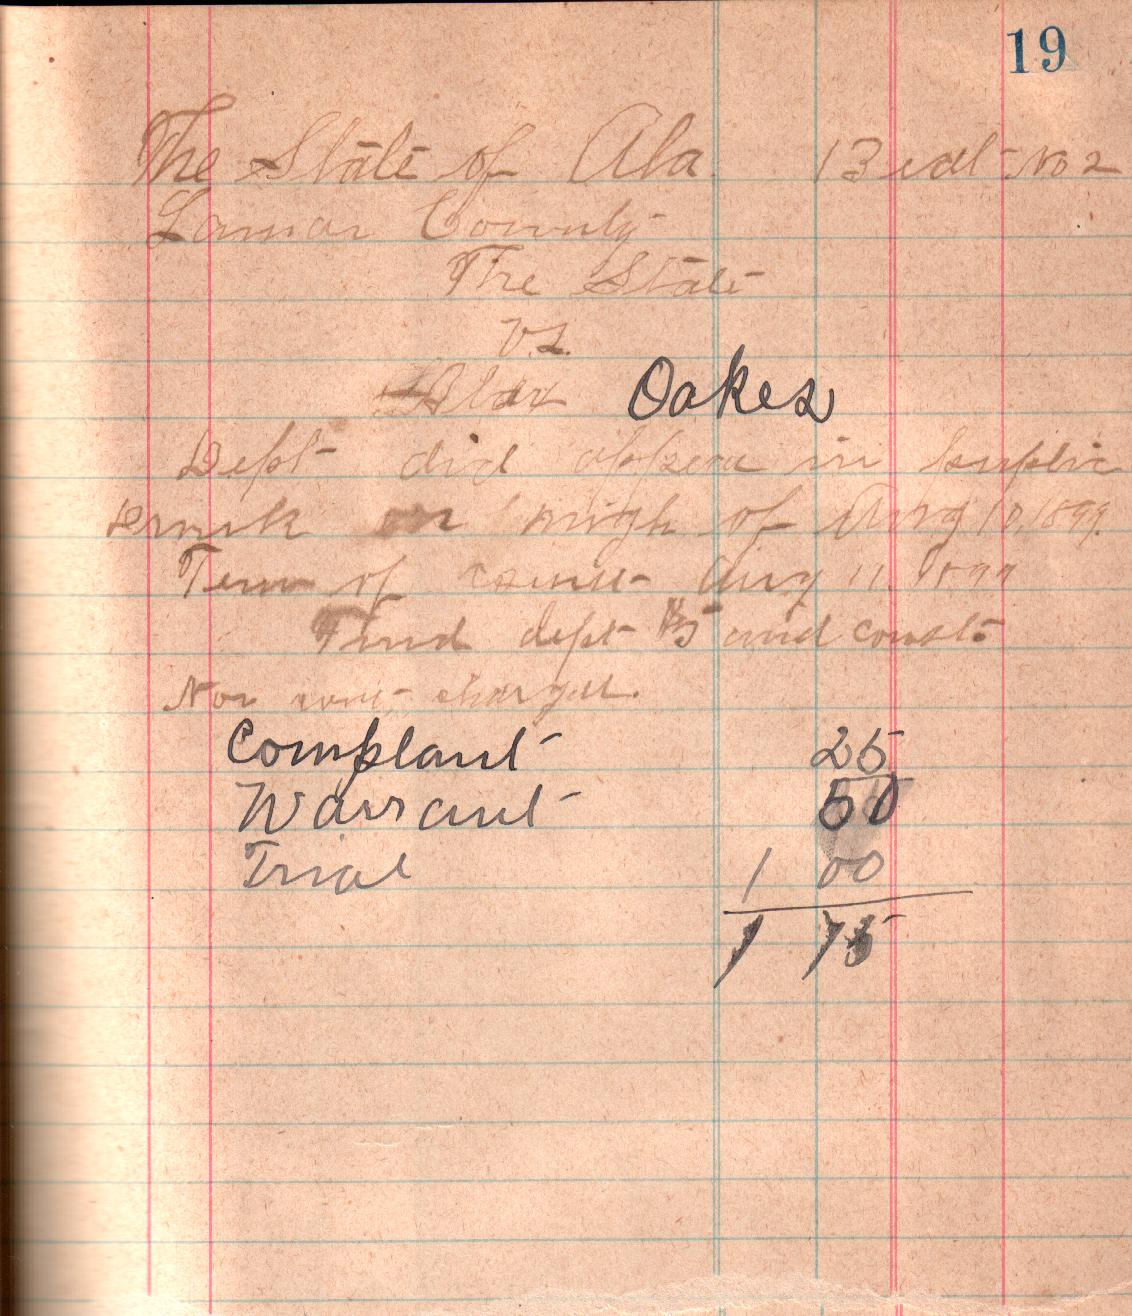 19
The State of Ala. 13 No 2
Lamar County
The State
vs.
Oakes
Deft did appear in
on nigh of Aug 10, 1899.
Term of Aug 11, 1899
Find deft $5 and
Nor charges.
Complant 25
Warrant 50
Trial 1 00
1 75